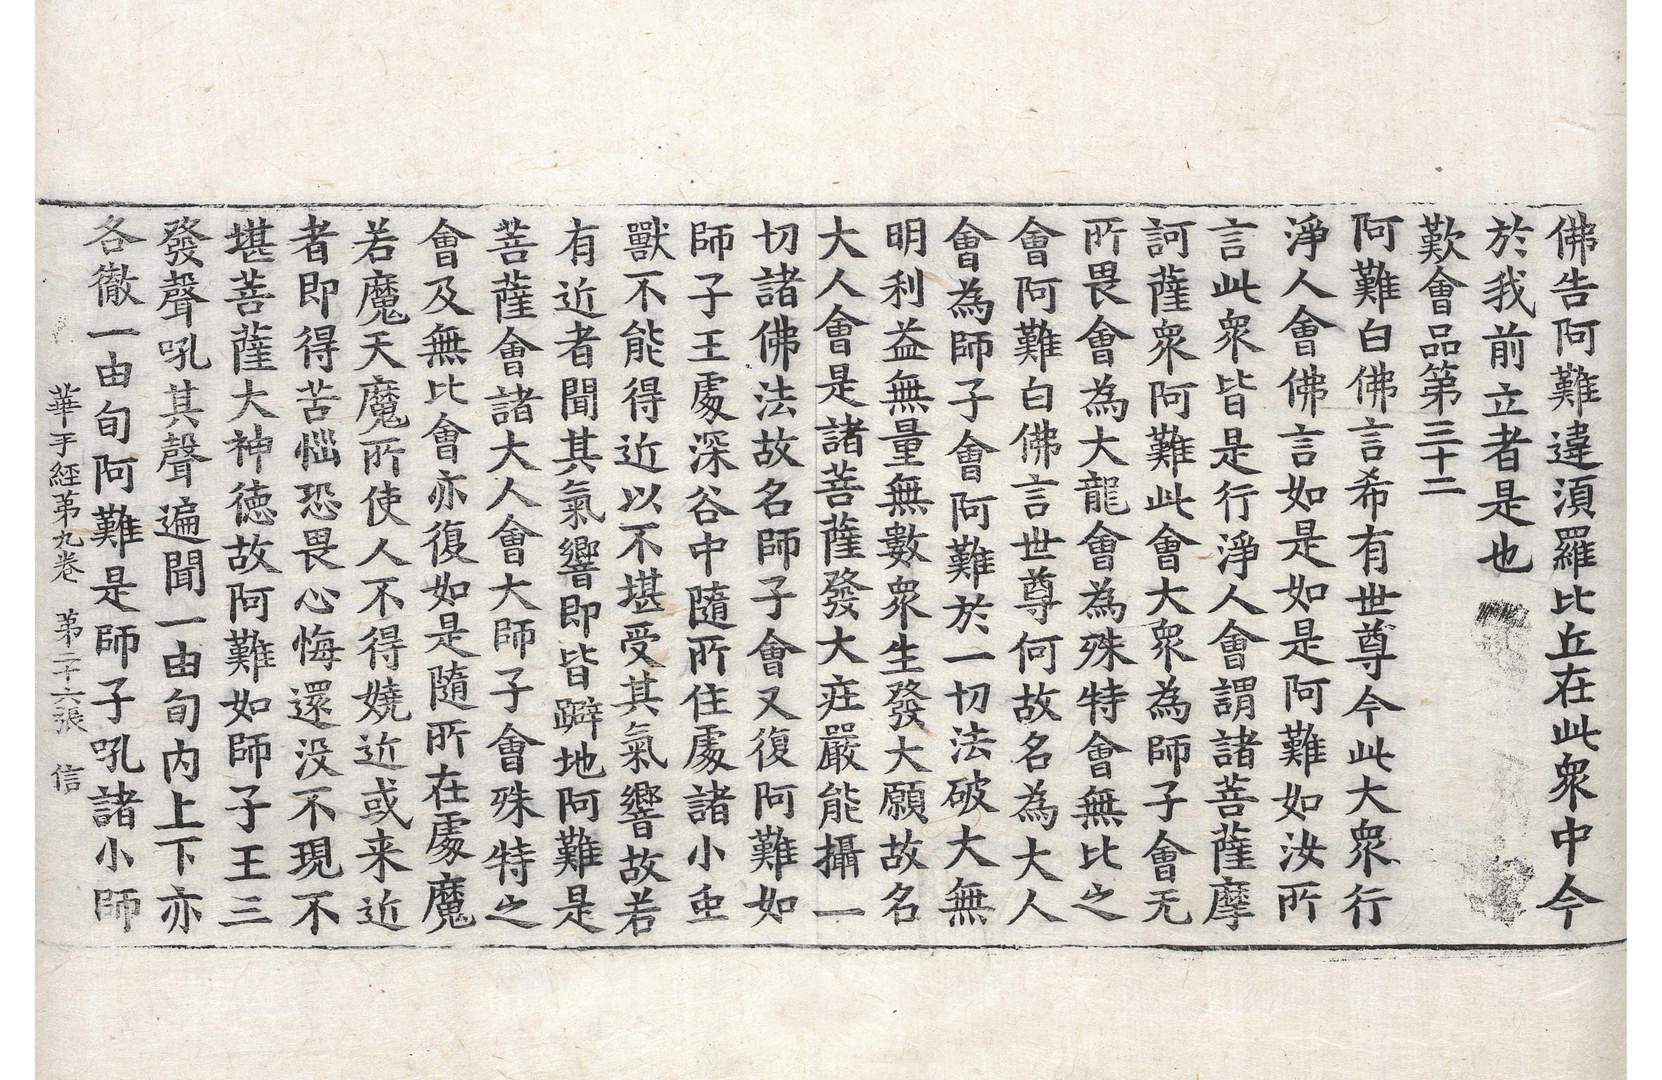 佛告阿難違湏羅比丘在此衆中今
於我前立者是也
歎會品第三十二
阿難白佛言希有世尊今此大衆行
淨人會佛言如是如是阿難如汝所
言此衆皆是行淨人會謂諸菩薩摩
訶薩衆阿難此會大衆為師子會无
所畏會為大龍會為殊特會無比之
會阿難白佛言世尊何故名為大人
會為師子會阿難於一切法破大無
明利益無量無數衆生發大願故名
大人會是諸菩薩發大庄嚴能攝一
切諸佛法故名師子會又復阿難如
師子王處深谷中隨所住處諸小虫
獸不能得近以不堪受其氣響故若
有近者聞其氣響即皆躃地阿難是
菩薩會諸大人會大師子會殊特之
會及無比會亦復如是隨所在處魔
若魔天魔所使人不得嬈近或来近
者即得苦惱恐畏心悔還没不現不
堪菩薩大神德故阿難如師子王三
發聲吼其聲遍聞一由旬内上下亦
各徹一由旬阿難是師子吼諸小師
華手經第九卷　第二十六張　信